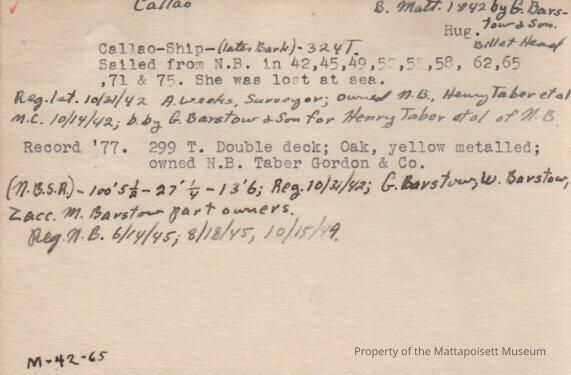 Callao
B. Matt. 1842 by G. Bars-
tow & Son.
Hug.
Billet Head
Callao-Ship-(later Bark)-324T.
Sailed from N.B. in 42,45,49,52,55,58, 62,65
,71 & 75. She was lost at sea.
Reg. 1st. 10/21/42 A. Weeks, Surveyor; owned N.B., Henry Taber et al
M.C. 10/14/42; b. by G. Barstow & Son for Henry Taber et al of N.B.
Record '77. 299 T. Double deck; Oak, yellow metalled;
owned N.B. Taber Gordon & Co.
(N.B.S.R.)-100'5½-27'¼-13'6; Reg. 10/21/42; G. Barstow, W. Barstow,
Zacc. M. Barstow part owners.
Reg. N.B. 6/14/45; 8/18/45, 10/15/49.
M-42-65
Property of the Mattapoisett Museum